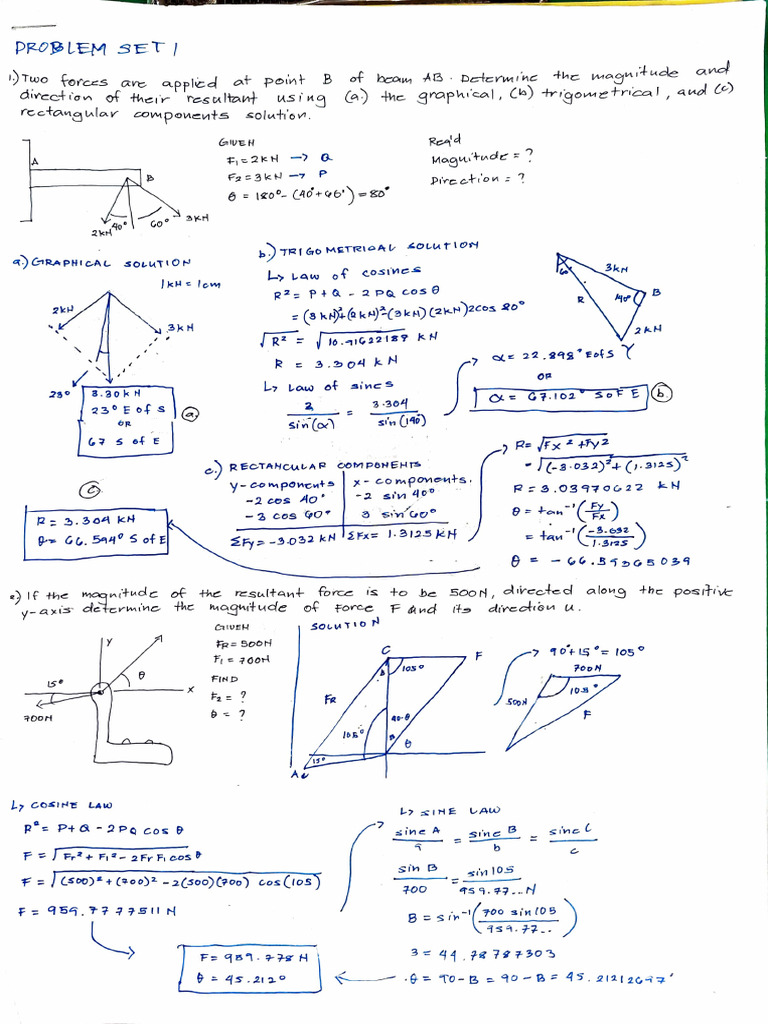 PROBLEM SET 1
1.) Two forces are applied at point B of beam AB. Determine the magnitude and
direction of their resultant using (a.) the graphical, (b.) trigometrical, and (c)
rectangular components solution.
A
B
2KN
40°
60°
3KN
GIVEN
F1 = 2KN → Q
F2 = 3KN → P
θ = 180° - (40° + 66°) = 80°
Req'd
Magnitude = ?
Direction = ?
a.) GRAPHICAL SOLUTION
1KH = 1cm
2KN
3KN
23°
3.30 KN
23° E of S
OR
67 S of E
(a)
b.) TRIGOMETRICAL SOLUTION
↳ Law of cosines
R² = P + Q - 2PQ cos θ
= (3KN)²+(2KN)²(3KN)(2KN)2cos 80°
√R² = √10.91622189 KN
R = 3.304 KN
↳ Law of sines
2/sin(α) = 3.304/sin(140°)
60°
3KN
R
140°
B
2KN
Y
α = 22.898° E of S
OR
α = 67.102° S of E
(b.)
c.) RECTANGULAR COMPONENTS
y-components
x-components.
-2 cos 40°
-2 sin 40°
-3 cos 60°
3 sin 60°
ΣFy = -3.032 KN
ΣFx = 1.3125 KN
R = √Fx² + Fy²
= √(-3.032)² + (1.3125)²
R = 3.03970622 KN
θ = tan⁻¹(Fy/Fx)
= tan⁻¹(-3.032/1.3125)
θ = -66.59365039
(c)
R = 3.304 KH
θ = 66.594° S of E
2.) If the magnitude of the resultant force is to be 500N, directed along the positive
y-axis determine the magnitude of Force F and its direction u.
y
15°
θ
x
700N
GIVEN
FR = 500N
F1 = 700N
FIND
F2 = ?
θ = ?
SOLUTION
C
F
B
105°
FR
90-θ
105°
B
θ
15°
A
90° + 15° = 105°
700N
500N
105°
F
↳ COSINE LAW
R² = P + Q - 2PQ cos θ
F = √Fr² + F1² - 2Fr F1 cos θ
F = √(500)² + (700)² - 2(500)(700) cos(105)
F = 959.7777511 N
F = 959.778 N
θ = 45.212°
↳ SINE LAW
sine A/a = sine B/b = sine C/c
sin B/700 = sin 105/959.77...N
B = sin⁻¹(700 sin 105/959.77..)
3 = 44.78787303
∴θ = 90 - B = 90 - B = 45.21212697°